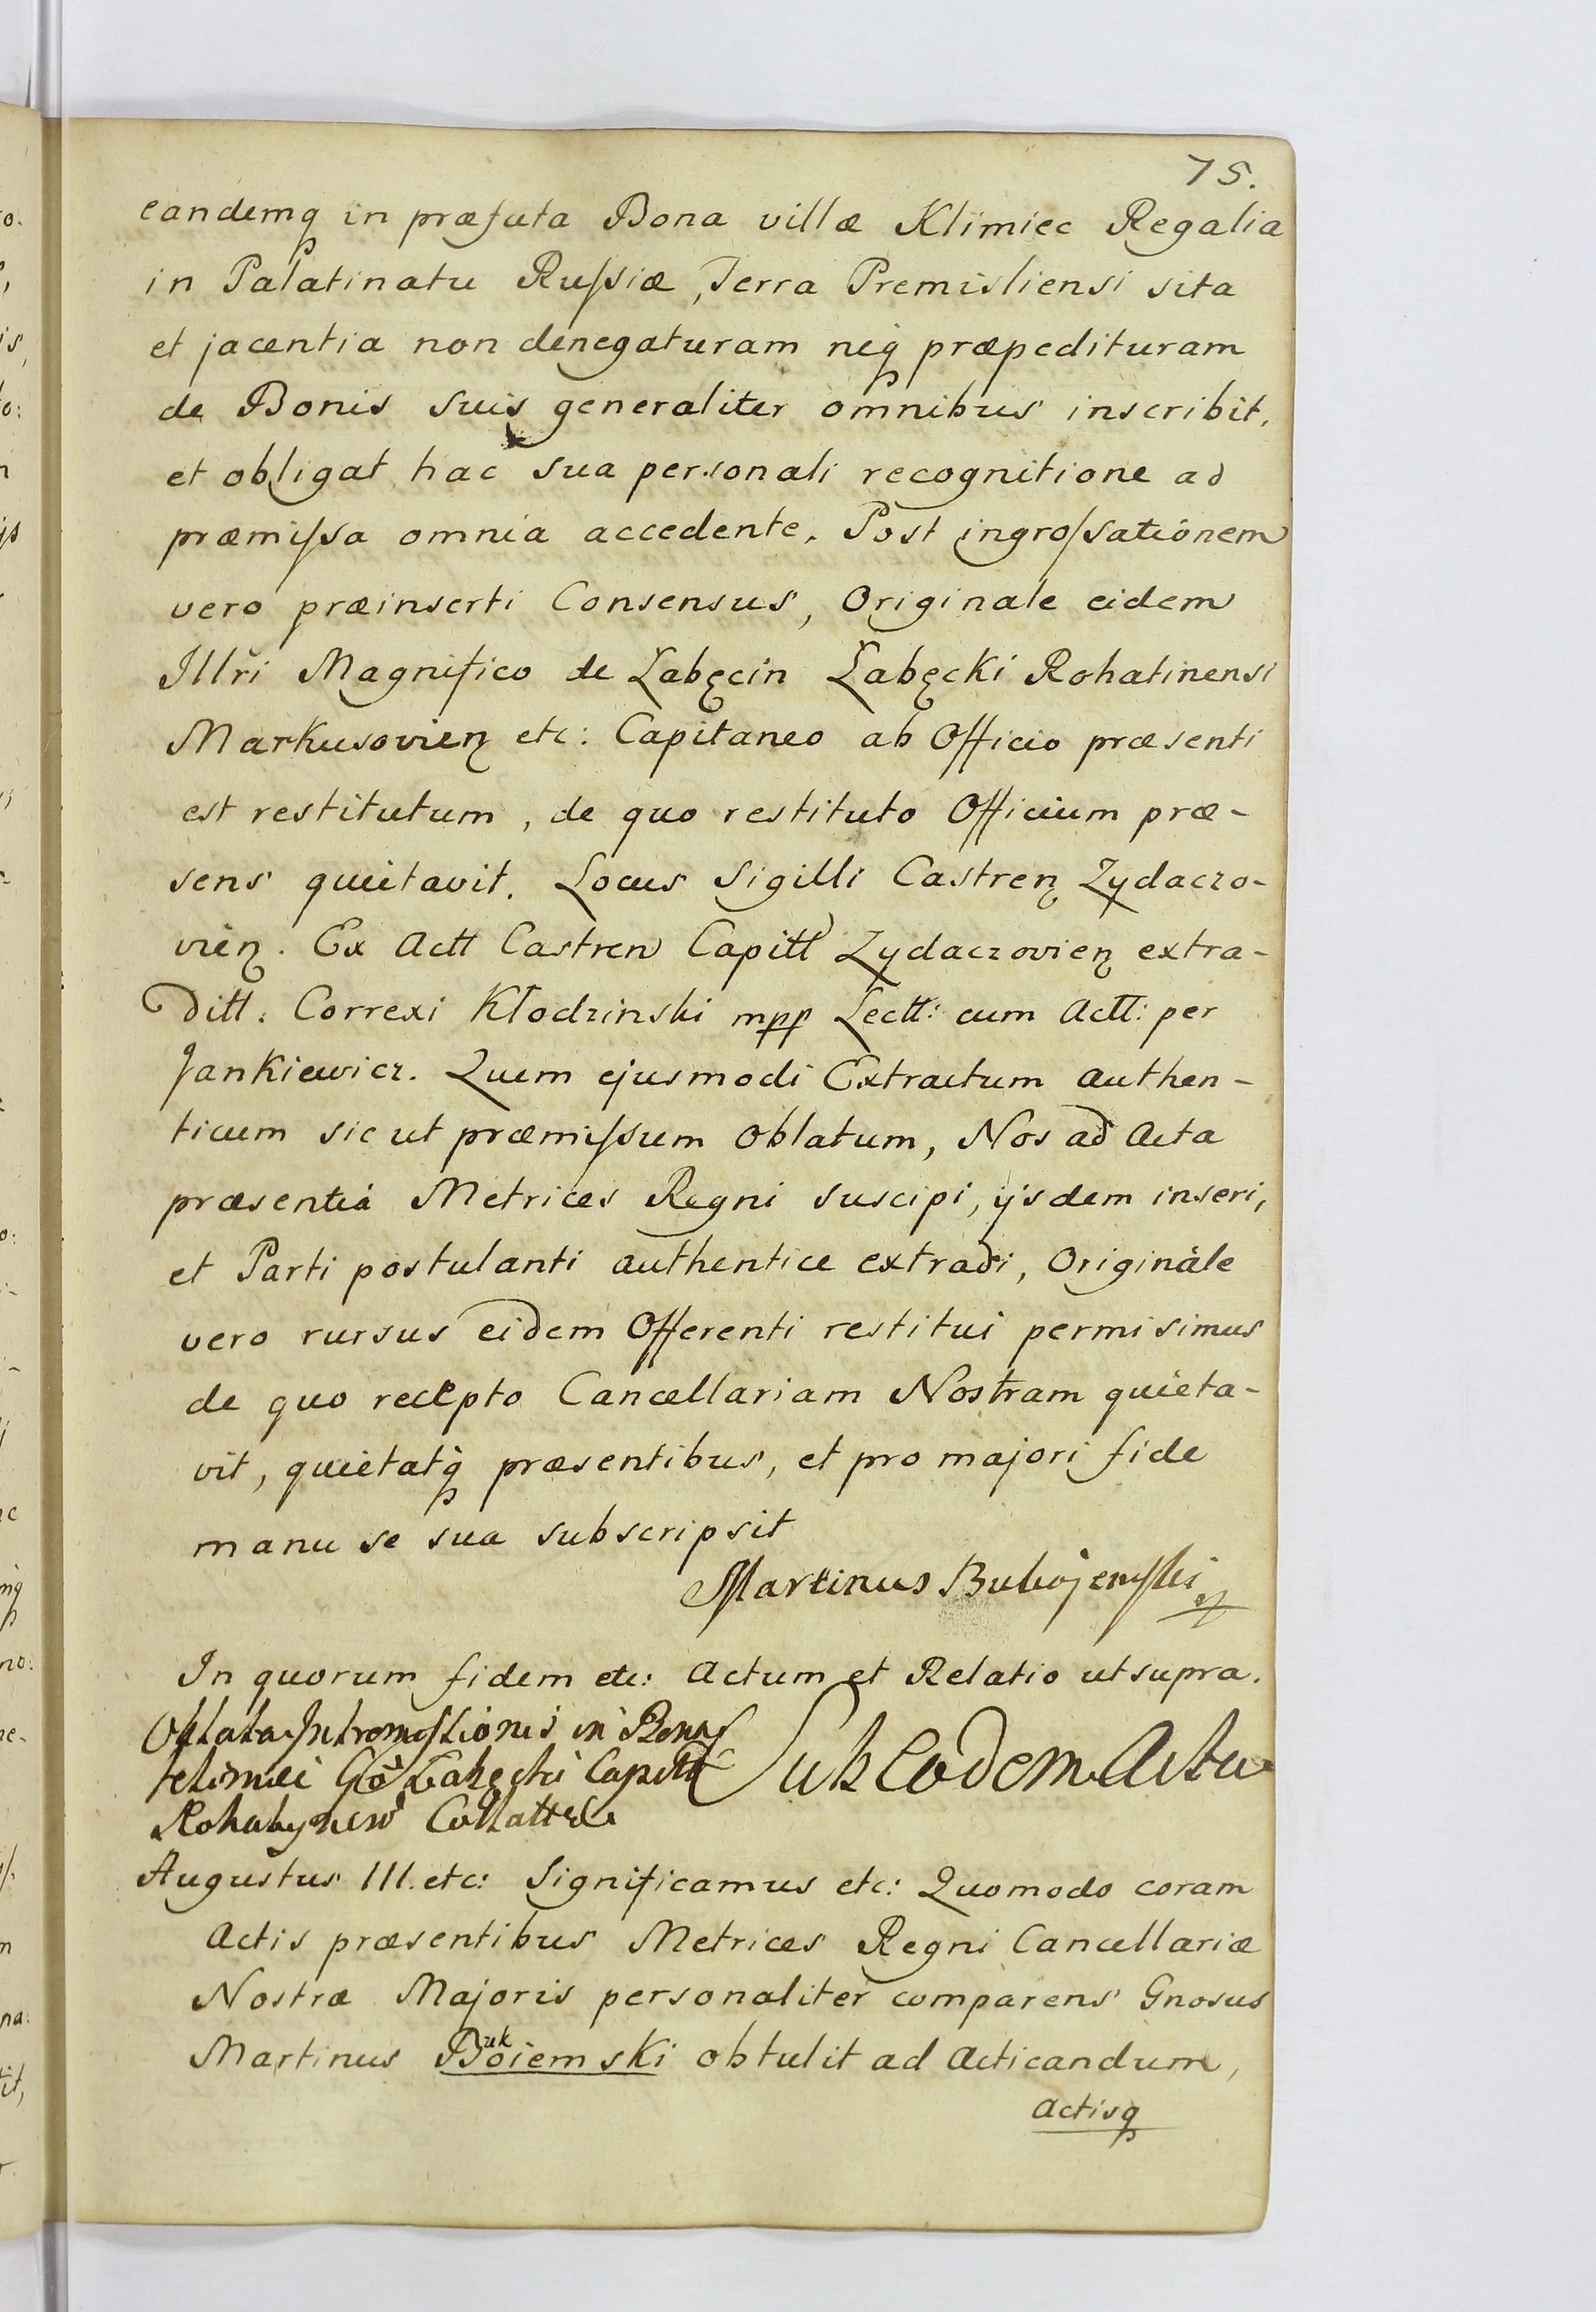 75.
eandemq in præfata Bona villæ Klimiec Regalia
in Palatinatu Russiæ, Terra Premisliensi sita
et jacentia non denegaturam neq præpedituram
de Bonis suis generaliter omnibus inscribit.
et obligat hac sua personali recognitione ad
præmissa omnia accedente. Post ingrossationem
vero præinserti Consensus, Originale eidem
Illri Magnifico de Łabęcin Łabęcki Rohatinensi
Markusovien etc: Capitaneo ab Officio præsenti
est restitutum, de quo restituto Officium præ-
sens quietavit. Locus Sigilli Castren Zydaczo-
vien. Ex Actt Castren Capitt Zydaczovien extra-
ditt. Correxi Kłodzinski mpp Lectt: cum Actt: per
Jankiewicz. Quem ejusmodi Extractum authen-
ticum sic ut præmissum oblatum, Nos ad Acta
præsentia Metrices Regni suscipi, ijsdem inseri,
et Parti postulanti authentice extradi, Originale
vero rursus eidem Offerenti restitui permisimus
de quo recepto Cancellariam Nostram quieta-
vit, quietatq præsentibus, et pro majori fide
manu se sua subscripsit
Martinus
In quorum fidem etc: Actum et Relatio ut supra.
Oblata Intromissionis in Bona
Łabęcki Capitt Sub Eodem Actu
Augustus III. etc: Significamus etc: Quomodo coram
Actis præsentibus Metrices Regni Cancellariæ
Nostræ Majoris personaliter comparens Gnosus
Martinus Bukoiemski obtulit ad Acticandum,
actisq